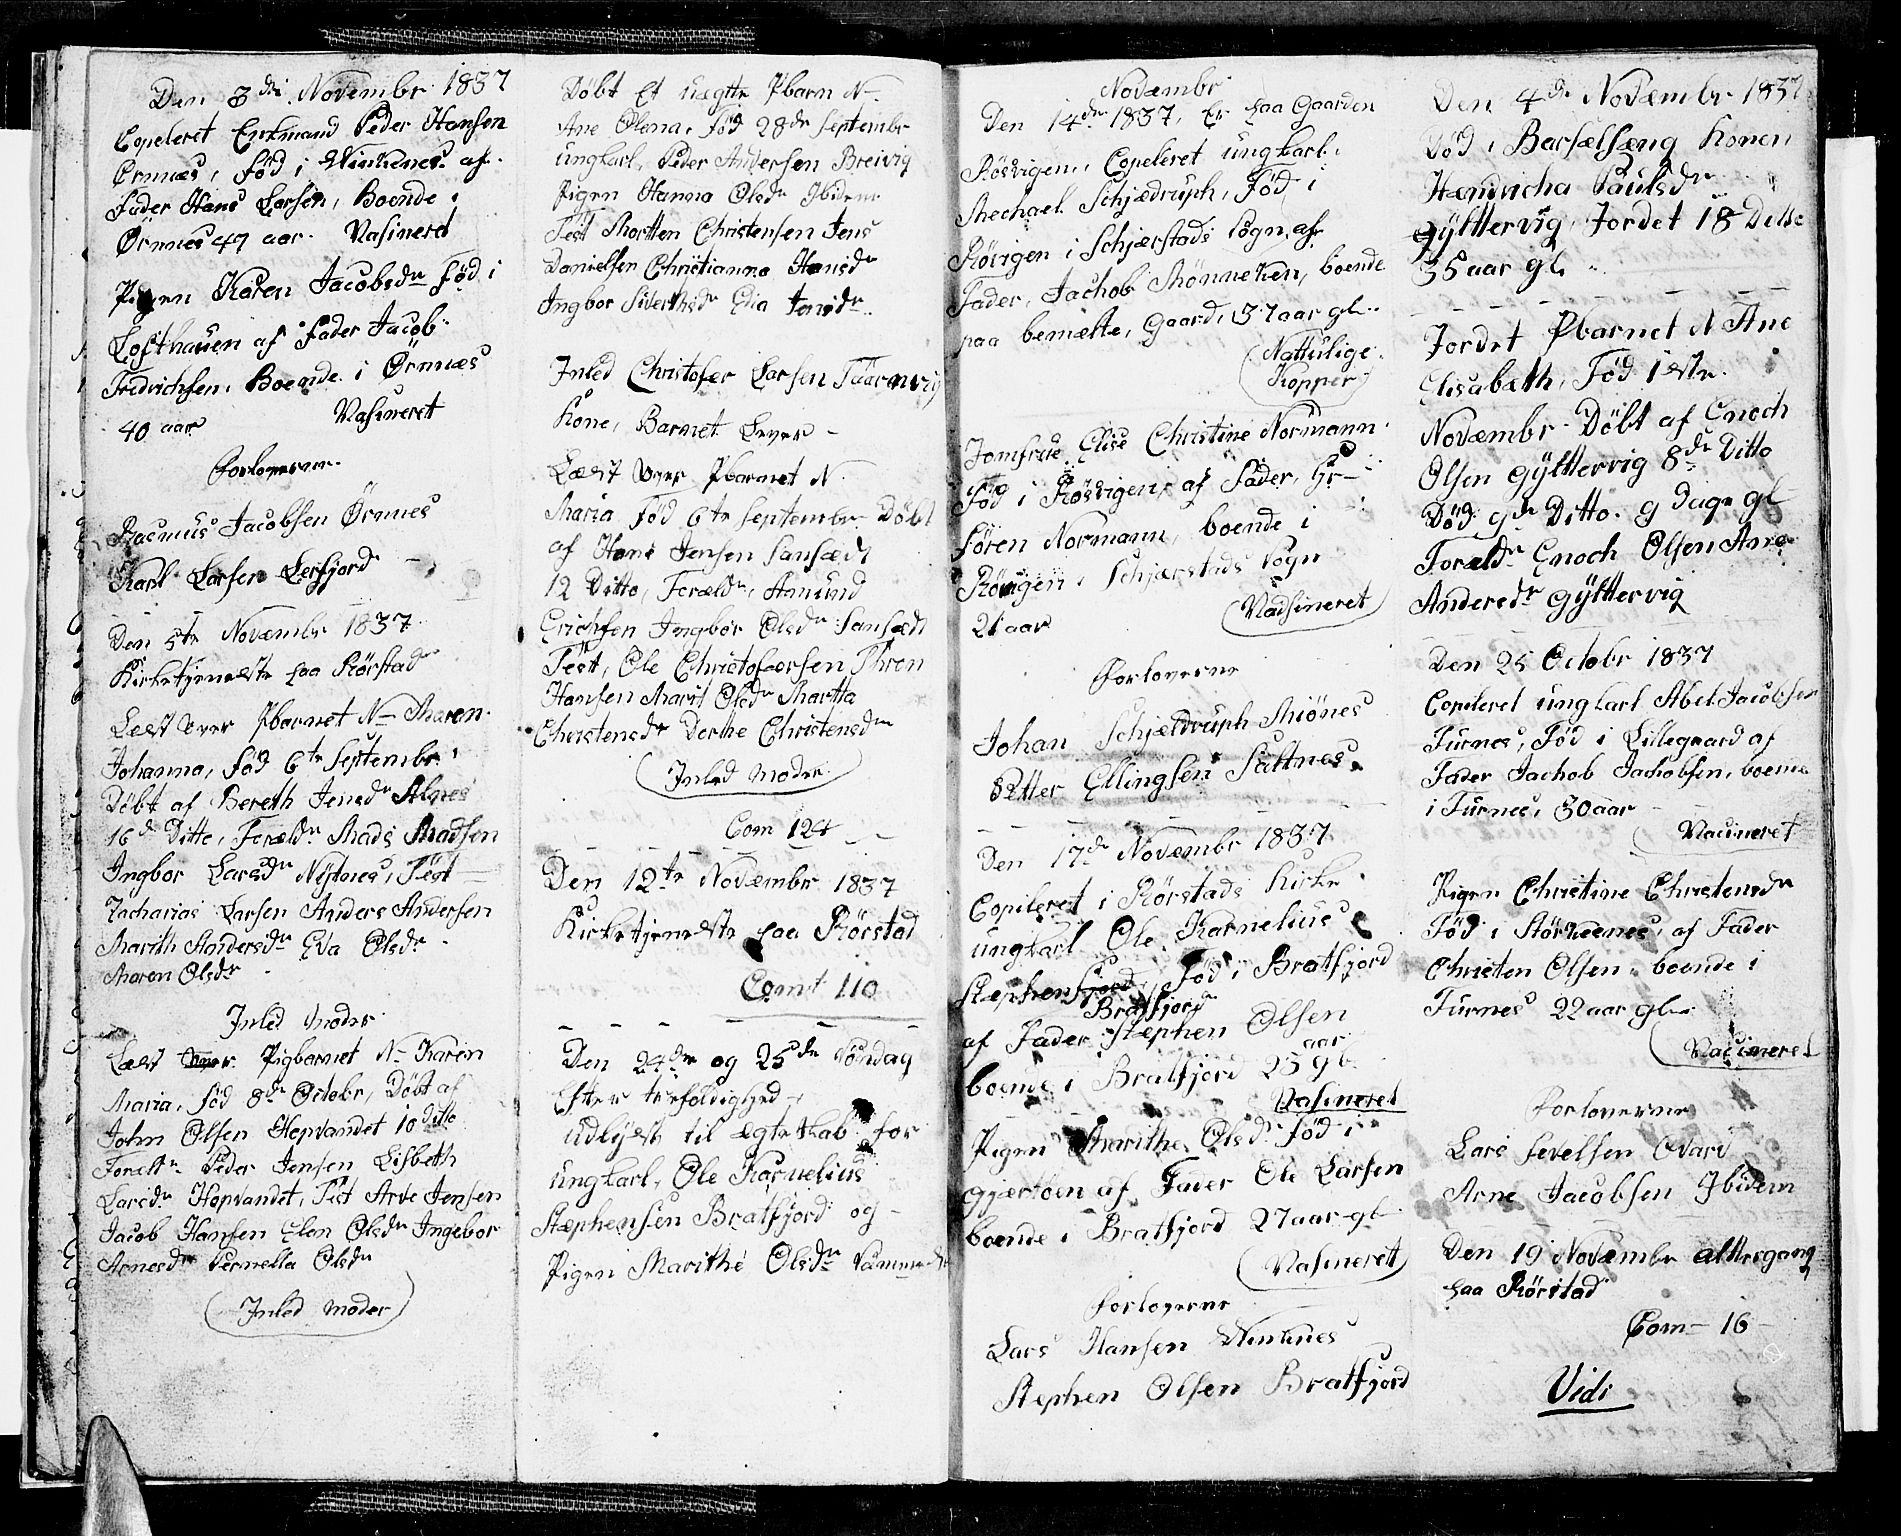 Den 3die Novembr 1837
Copeleret Enkmand Peder Hansen
Örnnæs, Fød i Vinkenes af
Fader Hans Larsen, Boende i
Örnnes 47 aar. Vasineret
Pigen Karen Jacobsdr Fød i
Lofthauen af Fader Jacob
Fredrichsen. Boende i Örnnæs
40 aar Vasineret
Forloverne
Rasmus Jacobsen Örnnes
Karl Larsen Lerfjord
Den 5te Novæmbr 1837
Kirketjeneste paa Rörstad
Læst over Pbarnet N– Maren
Johanna, Fød 6te Septembr
Döbt af Bereth Jensdr Alnes
16d Ditto, Foreldr Mads Madsen
Ingbor Larsdr Nystnes, Test
Zacharias Larsen Anders Andersen
Marith Andersdr Eva Olsdr
Maren Olsdr
Inled Moder
Læst over Pigbarnet N– Karen
Maria, Fød 8de Octobr, Döbt af
John Olsen Hopvandet 10 ditto
Foreldr Peder Jensen Lisbeth
Larsdr Hopvandet, Test Arve Jensen
Jacob Hansen Elen Olsdr Ingebor
Arnesdr Pernella Olsdr
(Inled Moder)
Döbt Et uægte Pbarn N–
Ane Olena, Fød 28de Septembr
ungkarl Peder Andersen Breivig
Pigen Hanna Olsdr Ibidem
Test Mortten Christensen Jens
Danielsen Christianna Hansdr
Ingbor Siverthsdr Elia Jensdr
Inled Christofer Larsen Taarnvig
Kone, Barnet Lever –
Læst over Pbarnet N
Maria Fød 6te Septembr Döbt
af Hans Jensen Sansædt
12 Ditto, Foreldr, Amund
Erichsen Ingbor Olsdr Sansædt
Test, Ole Christofersen Thron
Hansen Marit Olsdr Martha
Christensdr Dorthe Christensdr
(Inled Moder)
Com 124
Den 12te Novæmbr 1837
Kirketjeneste paa Rörstad
Comt 110
Den 24de og 25de Söndag
Efter trefoldighed –
udlyst til Ægteskab for
ungkarl, Ole Karnelius
Stephensen Bratfjord og –
Pigen Marithe Olsdr
Novæmbr
Den 14de 1837, Er paa Gaarden
Rösvigen, Copeleret ungkarl
Mechael Schjædruph, Fød i
Rövigen i Schjærstads Sogn af
Fader, Jachob Mönneken, boende
paa bemælte, Gaard, 37 aar gl.
(Nattulige
Kopper)
Jomfrue Elise Christine Normann
Fød i Rösvigen, af Fader, Hr –
Sören Normann, boende i
Rövigen i Schjærstads Sogn
21 aar (Vadsineret)
Forloverne
Johan Schjældruph Miönes
Petter Ellingsen Saltnes
Den 17de Novæmbr 1837
Copileret i Rörstads Kirke
ungkarl Ole Karnelius
Stephensfjord, Fød i Bratfjord
Bratfjord
af Fader Stephen Olsen
aar
boende i Bratfjord 25 gl
Vasineret
Pigen Marithe Olsdr Fød i
Gjærtoen af Fader Ole Larsen
boende i Bratfjord 27 aar gl
(Vasineret)
Forloverne
Lars Hansen Vinkenes
Stephen Olsen Bratfjord
Den 4de Novæmbr 1837
Död i Barselsæng Konen
Hændricha Paulsdr
Gylttervig, Jordet 18 Ditto
35 aar gl
Jordet Pbarnet N Ane
Elisabæth, Fød 1ste
Novæmbr Döbt af Enoch
Olsen Gylttervig 8de Ditto
Död 9de Ditto. 9 Dage gl
Foreldr Enoch Olsen Ane
Andersdr Gylttervig
Den 25 Octobr 1837
Copileret ungkarl Abel Jacobsen
Furnes, Fød i Lillegaard af
Fader Jachob Jachobsen, boende
i Furnes, 30 aar
(Vacineret
Pigen Christine Christensdr
Fød i Störkesnes, af Fader
Christen Olsen boende i
Furnes 22 aar gl.
(Vacineret
Forloverne
Lars Sevelsen Qvarv
Arne Jacobsen Ibidem
Den 19 Novæmbr alttergang
paa Rörstad
Com – 16 –
Vidi